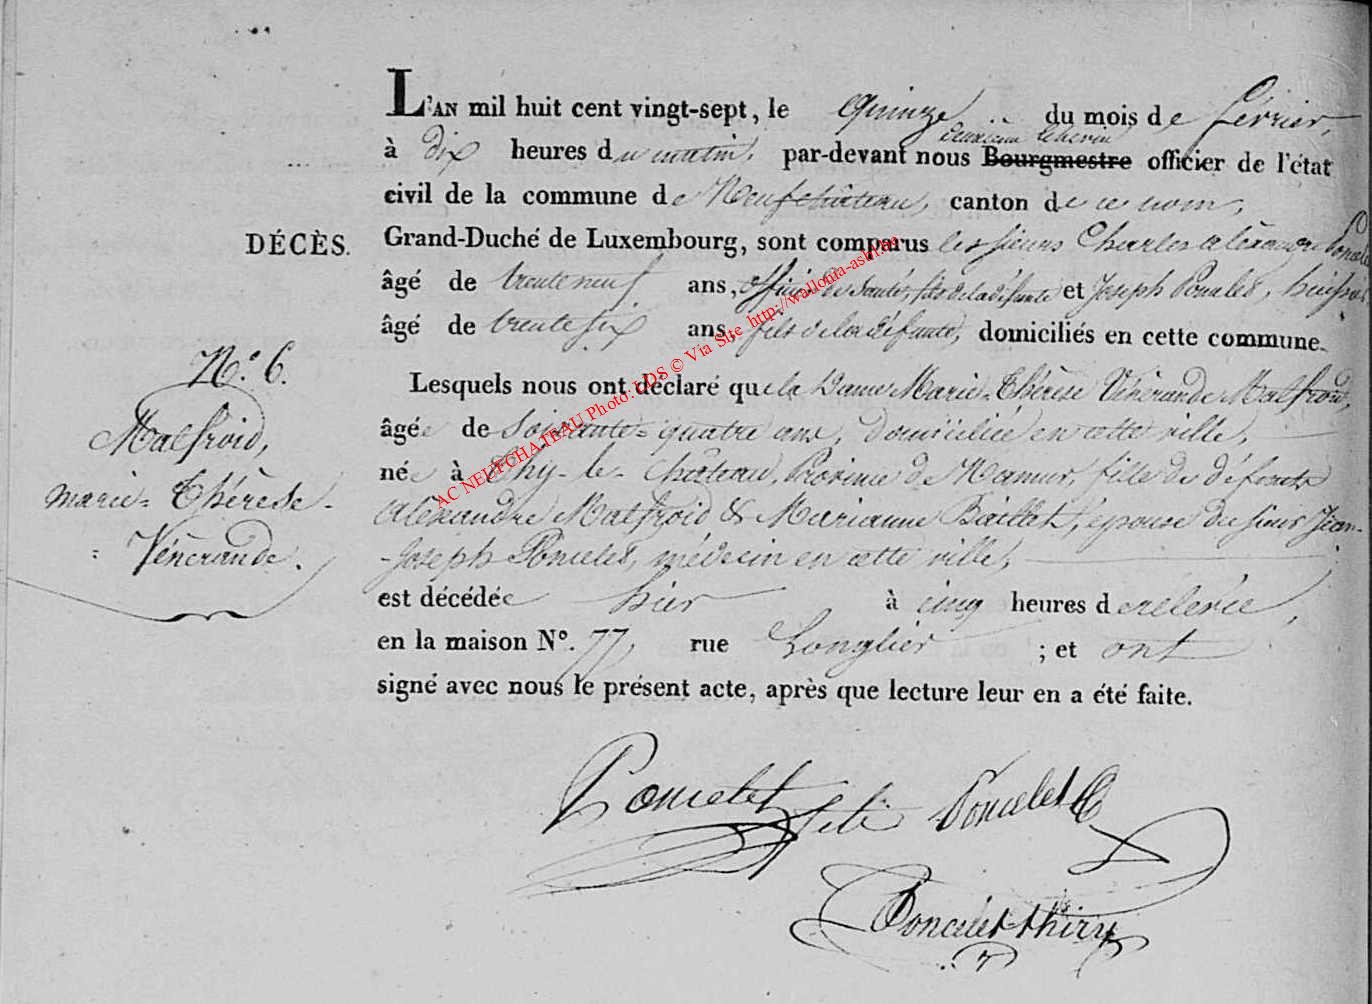 L'AN mil huit cent vingt-sept, le quinze du mois de février,
deuxième Echevin
à dix heures du matin, par-devant nous Bourgmestre officier de l'état
civil de la commune de Neufchâteau, canton de ce nom,
DÉCÈS.
Grand-Duché de Luxembourg, sont comparus les sieurs Charles Alexandre Poncelet
âgé de trente neuf ans, officier de Santé, fils de la défunte et Joseph Poncelet, huissier
âgé de trente six ans, fils de la défunte, domiciliés en cette commune.
N.º 6.
Malfroid,
marie-Thérèse-
Vénérande.
Lesquels nous ont déclaré que la Dame Marie-Thérèse Vénérande Malfroid,
âgée de soixante-quatre ans, domiciliée en cette ville
née à Thy-le-Château, Province de Namur, fille de défunts
Alexandre Malfroid & Marianne Baillet, épouse du sieur Jean-
-Joseph Poncelet, médecin en cette ville,
est décédée hier à cinq heures de relevée,
en la maison Nº. 77, rue Longlier ; et ont
signé avec nous le présent acte, après que lecture leur en a été faite.
Poncelet Poncelet
Poncelet-thiry
AC NEUFCHATEAU Photo: LDS © Via Site http://wallonia-asbl.be